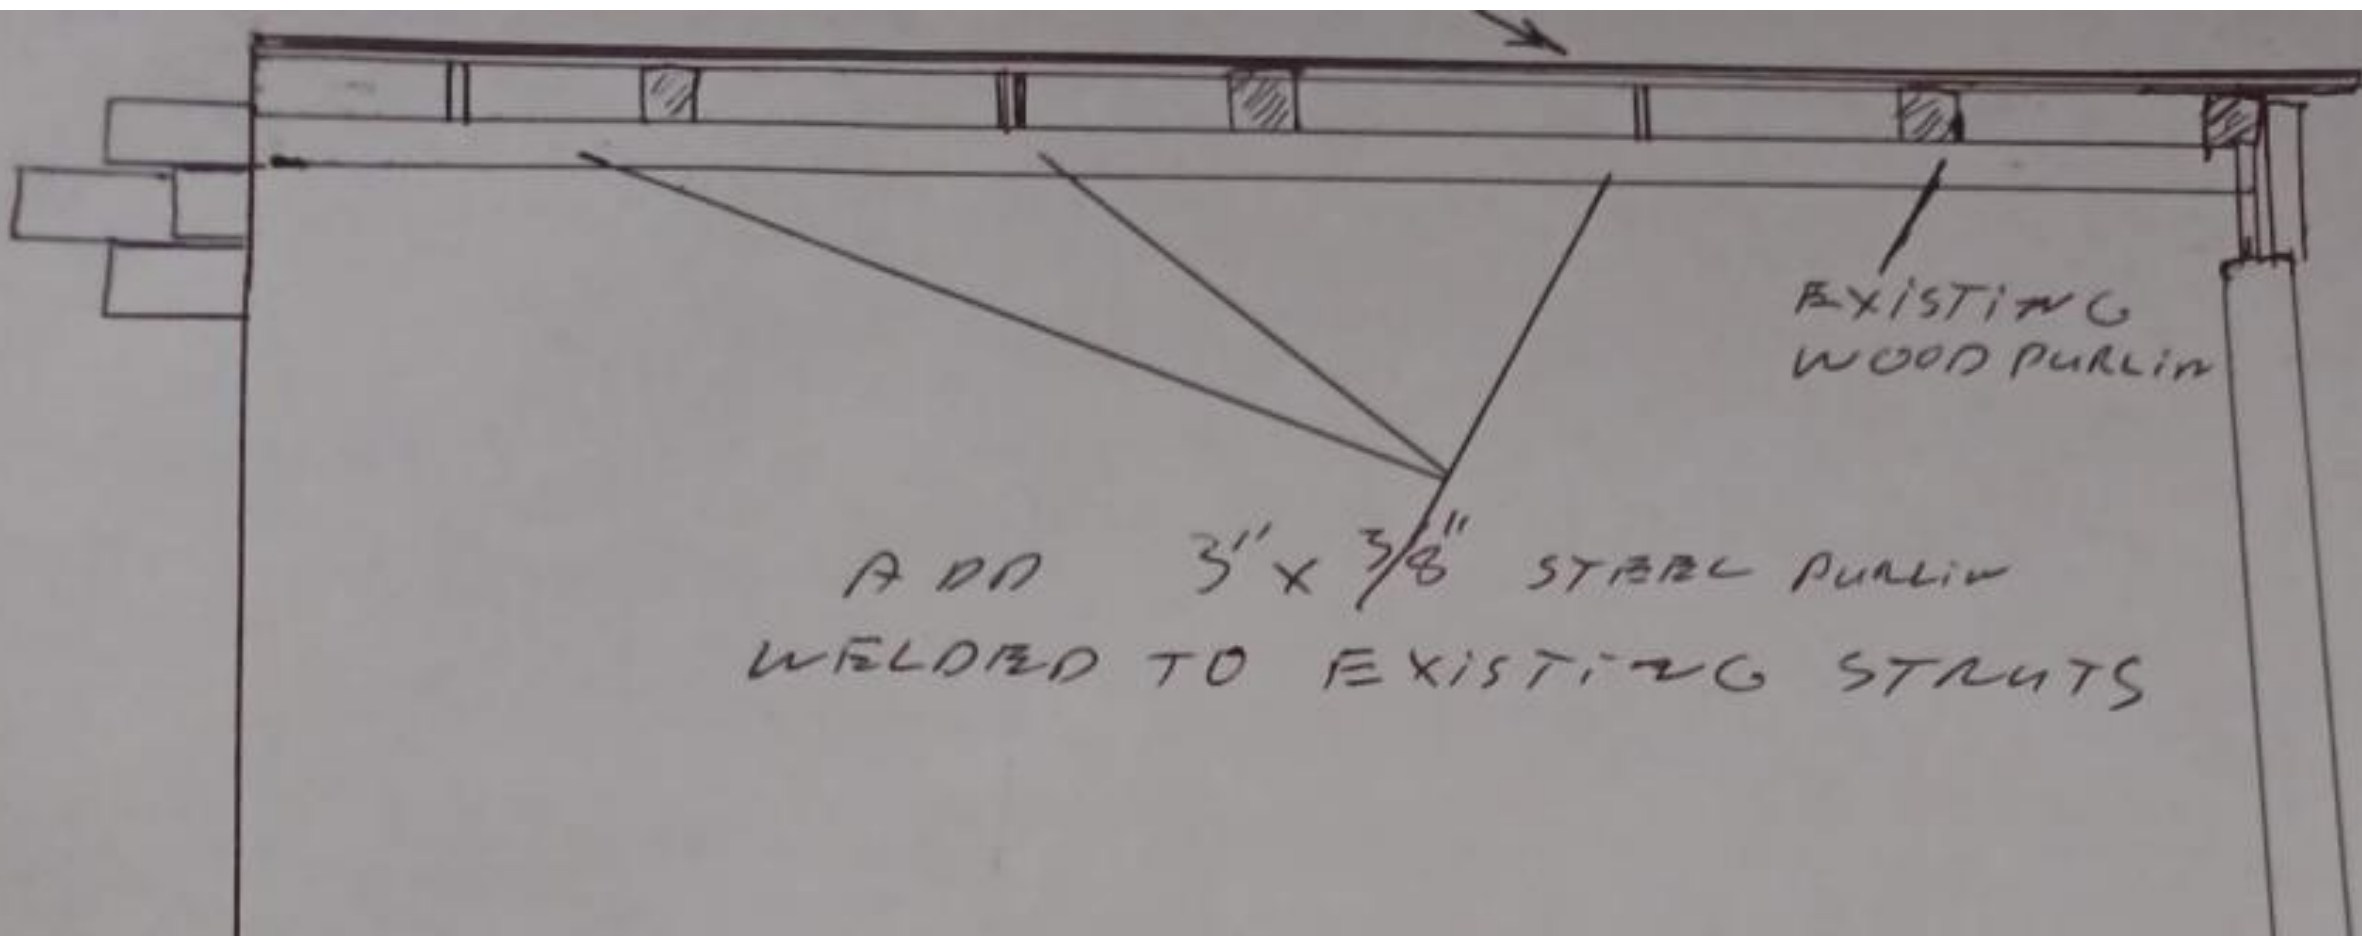 EXISTING
WOOD PURLIN
ADD 3" x 3/8" STEEL PURLIN
WELDED TO EXISTING STRUTS